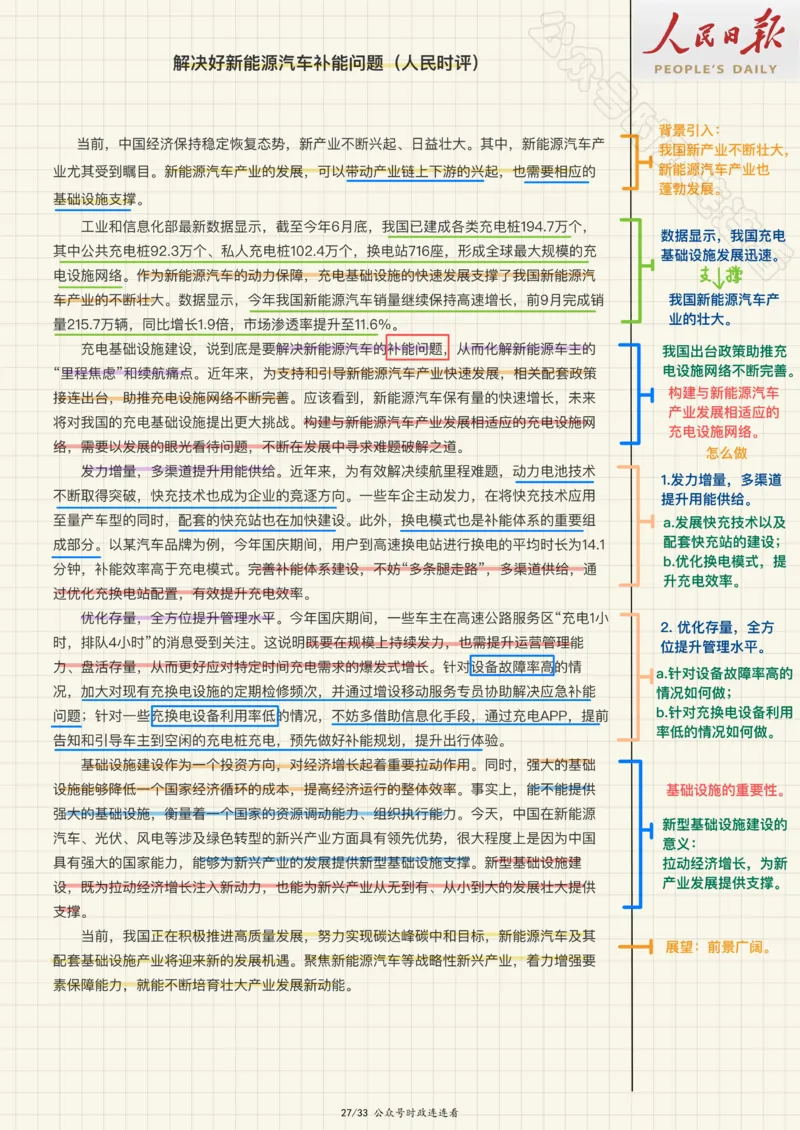 人民日报
PEOPLE'S DAILY
解决好新能源汽车补能问题（人民时评）
当前，中国经济保持稳定恢复态势，新产业不断兴起、日益壮大。其中，新能源汽车产
业尤其受到瞩目。新能源汽车产业的发展，可以带动产业链上下游的兴起，也需要相应的
基础设施支撑。
工业和信息化部最新数据显示，截至今年6月底，我国已建成各类充电桩194.7万个，
其中公共充电桩92.3万个、私人充电桩102.4万个，换电站716座，形成全球最大规模的充
电设施网络。作为新能源汽车的动力保障，充电基础设施的快速发展支撑了我国新能源汽
车产业的不断壮大。数据显示，今年我国新能源汽车销量继续保持高速增长，前9月完成销
量215.7万辆，同比增长1.9倍，市场渗透率提升至11.6%。
充电基础设施建设，说到底是要解决新能源汽车的补能问题，从而化解新能源车主的
“里程焦虑”和续航痛点。近年来，为支持和引导新能源汽车产业快速发展，相关配套政策
接连出台，助推充电设施网络不断完善。应该看到，新能源汽车保有量的快速增长，未来
将对我国的充电基础设施提出更大挑战。构建与新能源汽车产业发展相适应的充电设施网
络，需要以发展的眼光看待问题，不断在发展中寻求难题破解之道。
发力增量，多渠道提升用能供给。近年来，为有效解决续航里程难题，动力电池技术
不断取得突破，快充技术也成为企业的竞逐方向。一些车企主动发力，在将快充技术应用
至量产车型的同时，配套的快充站也在加快建设。此外，换电模式也是补能体系的重要组
成部分。以某汽车品牌为例，今年国庆期间，用户到高速换电站进行换电的平均时长为14.1
分钟，补能效率高于充电模式。完善补能体系建设，不妨“多条腿走路”，多渠道供给，通
过优化充换电站配置，有效提升充电效率。
优化存量，全方位提升管理水平。今年国庆期间，一些车主在高速公路服务区“充电1小
时，排队4小时”的消息受到关注。这说明既要在规模上持续发力，也需提升运营管理能
力、盘活存量，从而更好应对特定时间充电需求的爆发式增长。针对设备故障率高的情
况，加大对现有充换电设施的定期检修频次，并通过增设移动服务专员协助解决应急补能
问题；针对一些充换电设备利用率低的情况，不妨多借助信息化手段，通过充电APP，提前
告知和引导车主到空闲的充电桩充电，预先做好补能规划，提升出行体验。
基础设施建设作为一个投资方向，对经济增长起着重要拉动作用。同时，强大的基础
设施能够降低一个国家经济循环的成本，提高经济运行的整体效率。事实上，能不能提供
强大的基础设施，衡量着一个国家的资源调动能力、组织执行能力。今天，中国在新能源
汽车、光伏、风电等涉及绿色转型的新兴产业方面具有领先优势，很大程度上是因为中国
具有强大的国家能力，能够为新兴产业的发展提供新型基础设施支撑。新型基础设施建
设，既为拉动经济增长注入新动力，也能为新兴产业从无到有、从小到大的发展壮大提供
支撑。
当前，我国正在积极推进高质量发展，努力实现碳达峰碳中和目标，新能源汽车及其
配套基础设施产业将迎来新的发展机遇。聚焦新能源汽车等战略性新兴产业，着力增强要
素保障能力，就能不断培育壮大产业发展新动能。
背景引入：
我国新产业不断壮大，
新能源汽车产业也
蓬勃发展。
数据显示，我国充电
基础设施发展迅速。
支撑
我国新能源汽车产
业的壮大。
我国出台政策助推充
电设施网络不断完善。
构建与新能源汽车
产业发展相适应的
充电设施网络。
怎么做
1.发力增量，多渠道
提升用能供给。
a.发展快充技术以及
配套快充站的建设；
b.优化换电模式，提
升充电效率。
2. 优化存量，全方
位提升管理水平。
a.针对设备故障率高的
情况如何做；
b.针对充换电设备利用
率低的情况如何做。
基础设施的重要性。
新型基础设施建设的
意义：
拉动经济增长，为新
产业发展提供支撑。
展望：前景广阔。
27/33 公众号时政连连看